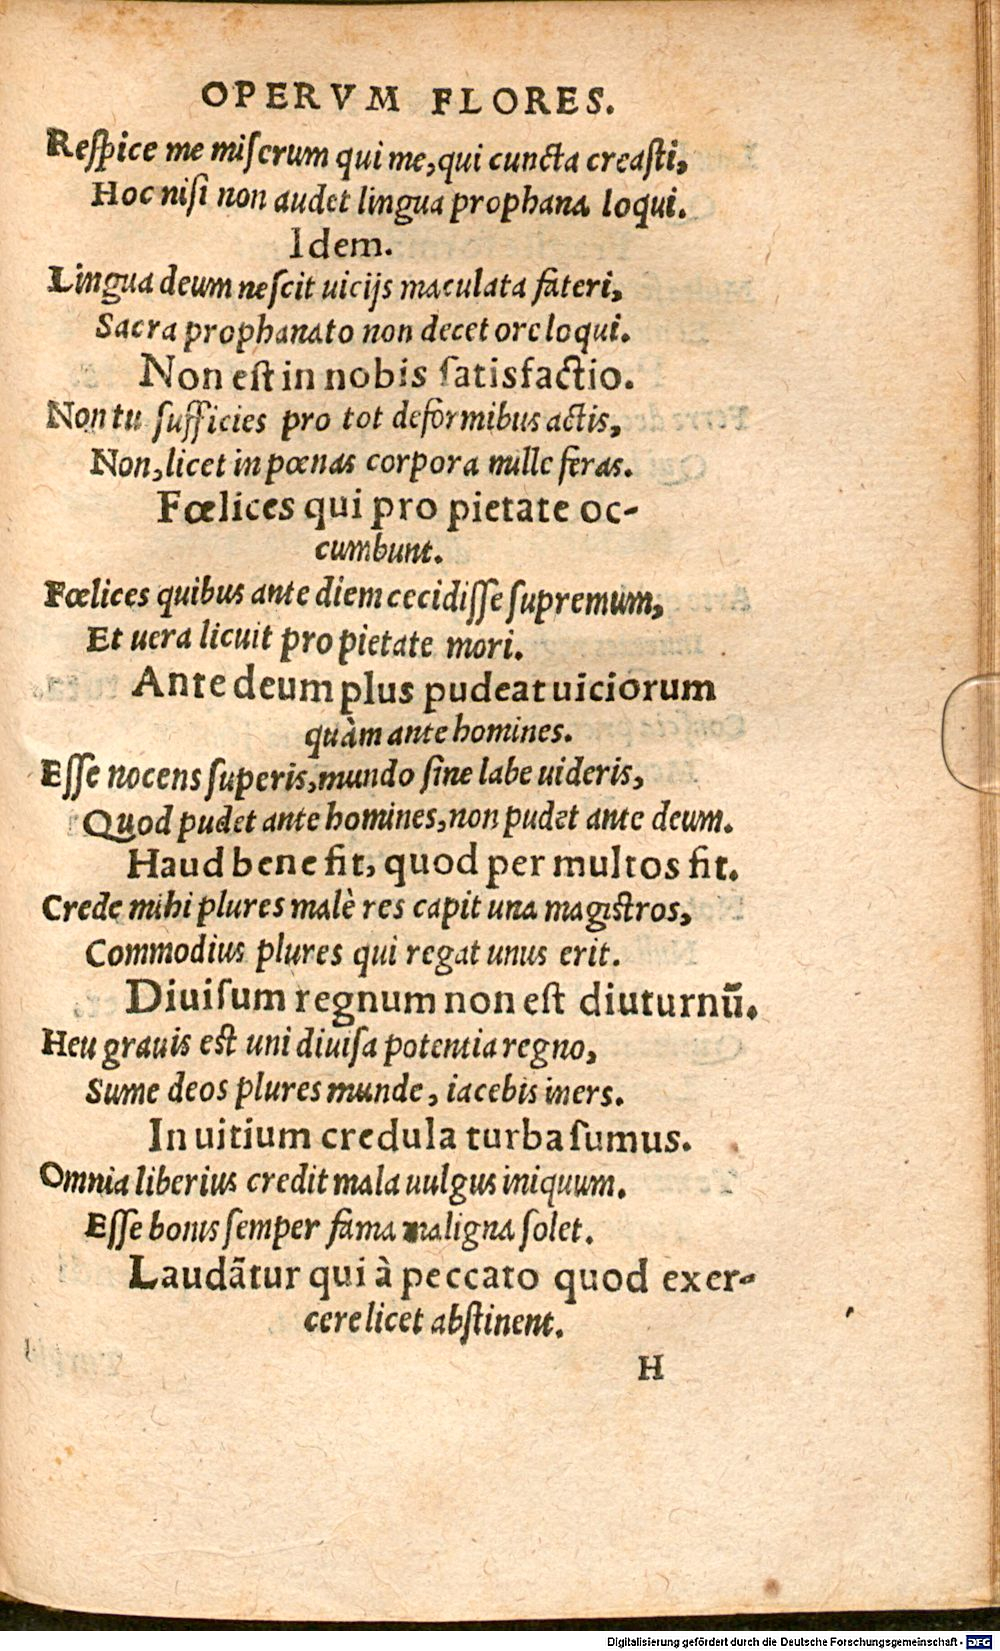 OPERVM FLORES.
Reſpice me miſerum qui me, qui cuncta creaſti,
Hoc niſi non audet lingua prophana loqui.
Idem.
Lingua deum neſcit uicijs maculata fateri,
Sacra prophanato non decet ore loqui.
Non eſt in nobis ſatisfactio.
Non tu ſufficies pro tot deformibus actis,
Non, licet in pœnas corpora mille feras.
Fœlices qui pro pietate oc-
cumbunt.
Fœlices quibus ante diem cecidiſſe ſupremum,
Et uera licuit pro pietate mori.
Ante deum plus pudeat uiciorum
quàm ante homines.
Eſſe nocens ſuperis, mundo ſine labe uideris,
Quod pudet ante homines, non pudet ante deum.
Haud bene fit, quod per multos fit.
Crede mihi plures malè res capit una magiſtros,
Commodius plures qui regat unus erit.
Diuiſum regnum non eſt diuturnū.
Heu grauis eſt uni diuiſa potentia regno,
Sume deos plures munde, iacebis iners.
In uitium credula turba ſumus.
Omnia liberius credit mala uulgus iniquum.
Eſſe bonis ſemper fama maligna ſolet.
Laudātur qui à peccato quod exer-
cere licet abſtinent.
H
Digitalisierung gefördert durch die Deutsche Forschungsgemeinschaft - DFG